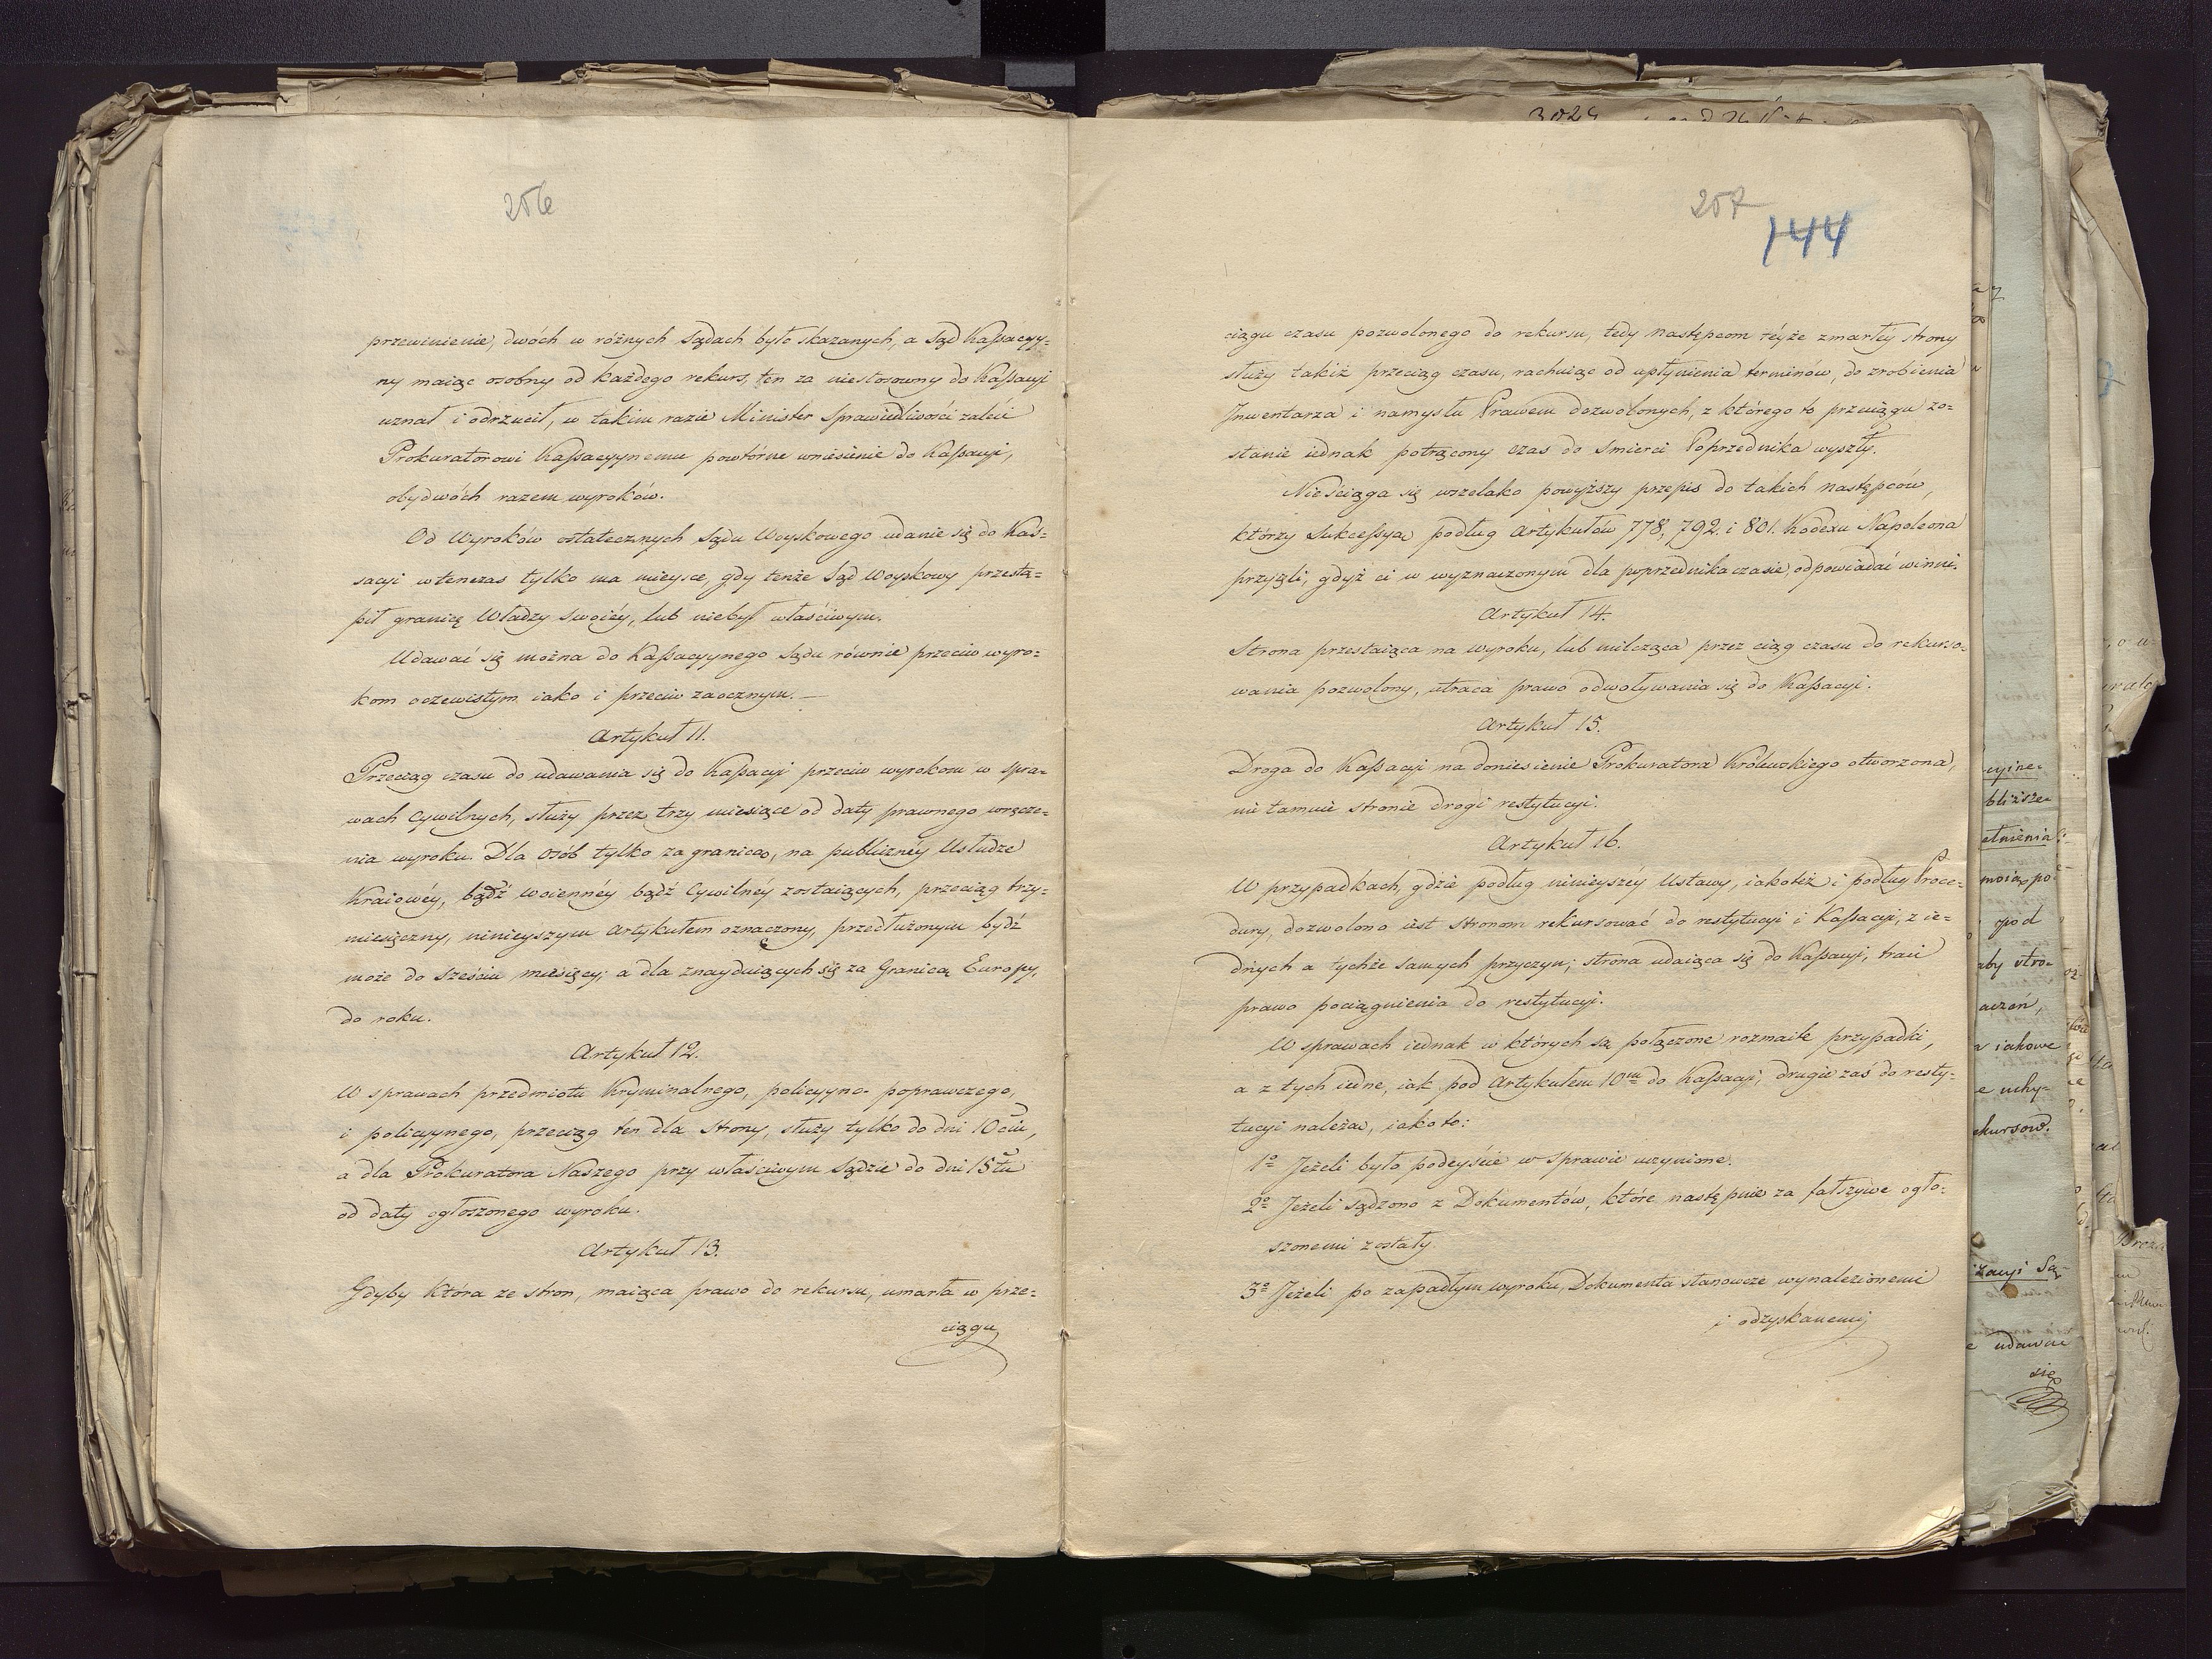 256
przewinienie, dwóch w różnych Sądach było skazanych, a Sąd Kassacyy=
ny maiąc osobny od każdego rekurs, ten za niestosowny do Kassacyi
uznał i odrzucił, w takim razie Minister Sprawiedliwości zaleci
Prokuratorowi Kassacyynemu powtórne wniesienie do Kassacyi,
obydwóch razem wyroków.
Od Wyroków ostatecznych Sądu Woyskowego udanie się do Kas=
sacyi wtenczas tylko ma mieysce, gdy tenże Sąd Woyskowy przestą=
pił granicę Władzy swoiéy, lub niebył właściwym.
Udawać się można do Kassacyynego Sądu równie przeciw wyro=
kom oczewistym iako i przeciw zaocznym. —
Artykuł 11.
Przeciąg czasu do udawania się do Kassacyi przeciw wyrokom w spra=
wach Cywilnych, służy przez trzy miesiące od daty prawnego wręcze=
nia wyroku. Dla osób tylko za granicą, na publicznéy Usłudze
Kraiowéy, bądź woiennéy bądź Cywilnéy zostaiących, przeciąg trzy=
miesięczny, ninieyszym Artykułem oznaczony, przedłużonym bydź
może do sześciu miesięcy; a dla znayduiących się za Granicą Europy,
do roku.
Artykuł 12.
W sprawach przedmiotu Kryminalnego, policyyno- poprawczego,
i policyynego, przeciąg ten dla Strony, służy tylko do dni 10ciu,
a dla Prokuratora Naszego przy właściwym Sądzie do dni 15tu
od daty ogłoszonego wyroku.
Artykuł 13.
Gdyby która ze stron, maiąca prawo do rekursu, umarła w prze=
ciągu
257
144
ciągu czasu pozwolonego do rekursu, tedy następcom téyże zmarłéy strony
służy takiż przeciąg czasu, rachuiąc od upłynienia terminów, do zrobienia
Inwentarza i namysłu Prawem dozwolonych, z którego to przeciągu zo=
stanie iednak potrącony czas do śmierci Poprzednika wyszły.
Nieściąga się wszelako powyższy przepis do takich następców,
którzy Sukcessyą podług Artykułów 778, 792. i 801. Kodexu Napoleona
przyięli, gdyż ci w wyznaczonym dla poprzednika czasie, odpowiadać winni.
Artykuł 14.
Strona przestaiąca na wyroku, lub milcząca przez ciąg czasu do rekurso=
wania pozwolony, utraca prawo odwoływania się do Kassacyi.
Artykuł 15.
Droga do Kassacyi na doniesienie Prokuratora Królewskiego otworzona,
nie tamuie stronie drogi restytucyi.
Artykuł 16.
W przypadkach, gdzie podług ninieyszéy Ustawy, iakoteż i podług Proce=
dury, dozwolono iest stronom rekursować do restytucyi i Kassacyi, z ie=
dnych a tychże samych przyczyn; strona udaiąca się do Kassacyi, traci
prawo pociągnienia do restytucyi.
W sprawach iednak w których są połączone rozmaite przypadki,
a z tych iedne, iak pod Artykułem 10m do Kassacyi, drugie zaś do resty=
tucyi należą, iako to:
1o Jeżeli było podeyście w sprawie uczynione.
2o Jeżeli sądzono z Dokumentów, które następnie za fałszywe ogło=
szonemi zostały.
3o Jeżeli po zapadłym wyroku, Dokumenta stanowcze wynalezionemi
i odzyskanemi